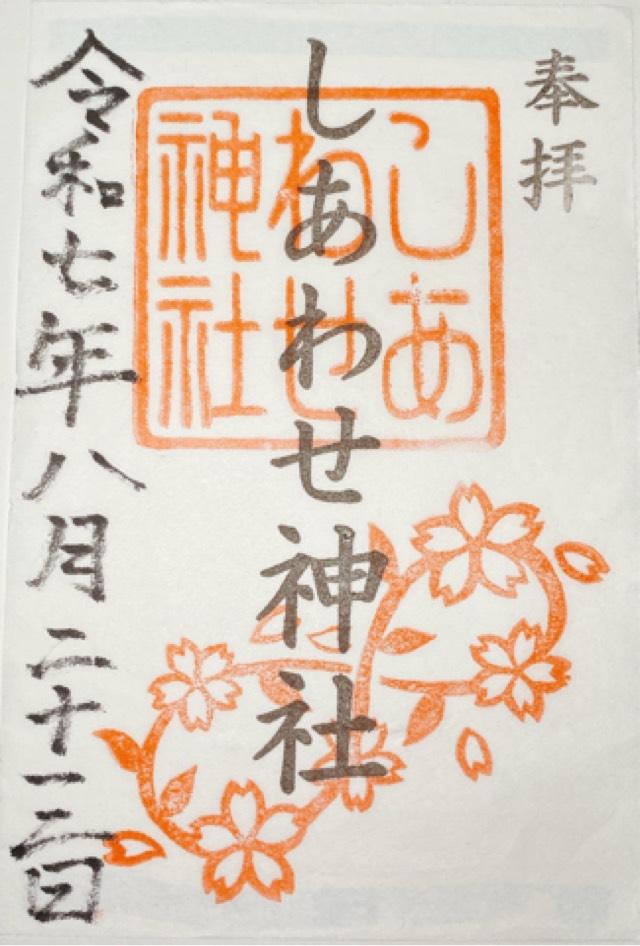 奉拝
しあわせ神社
しあ
わせ
神社
令和七年八月二十三日